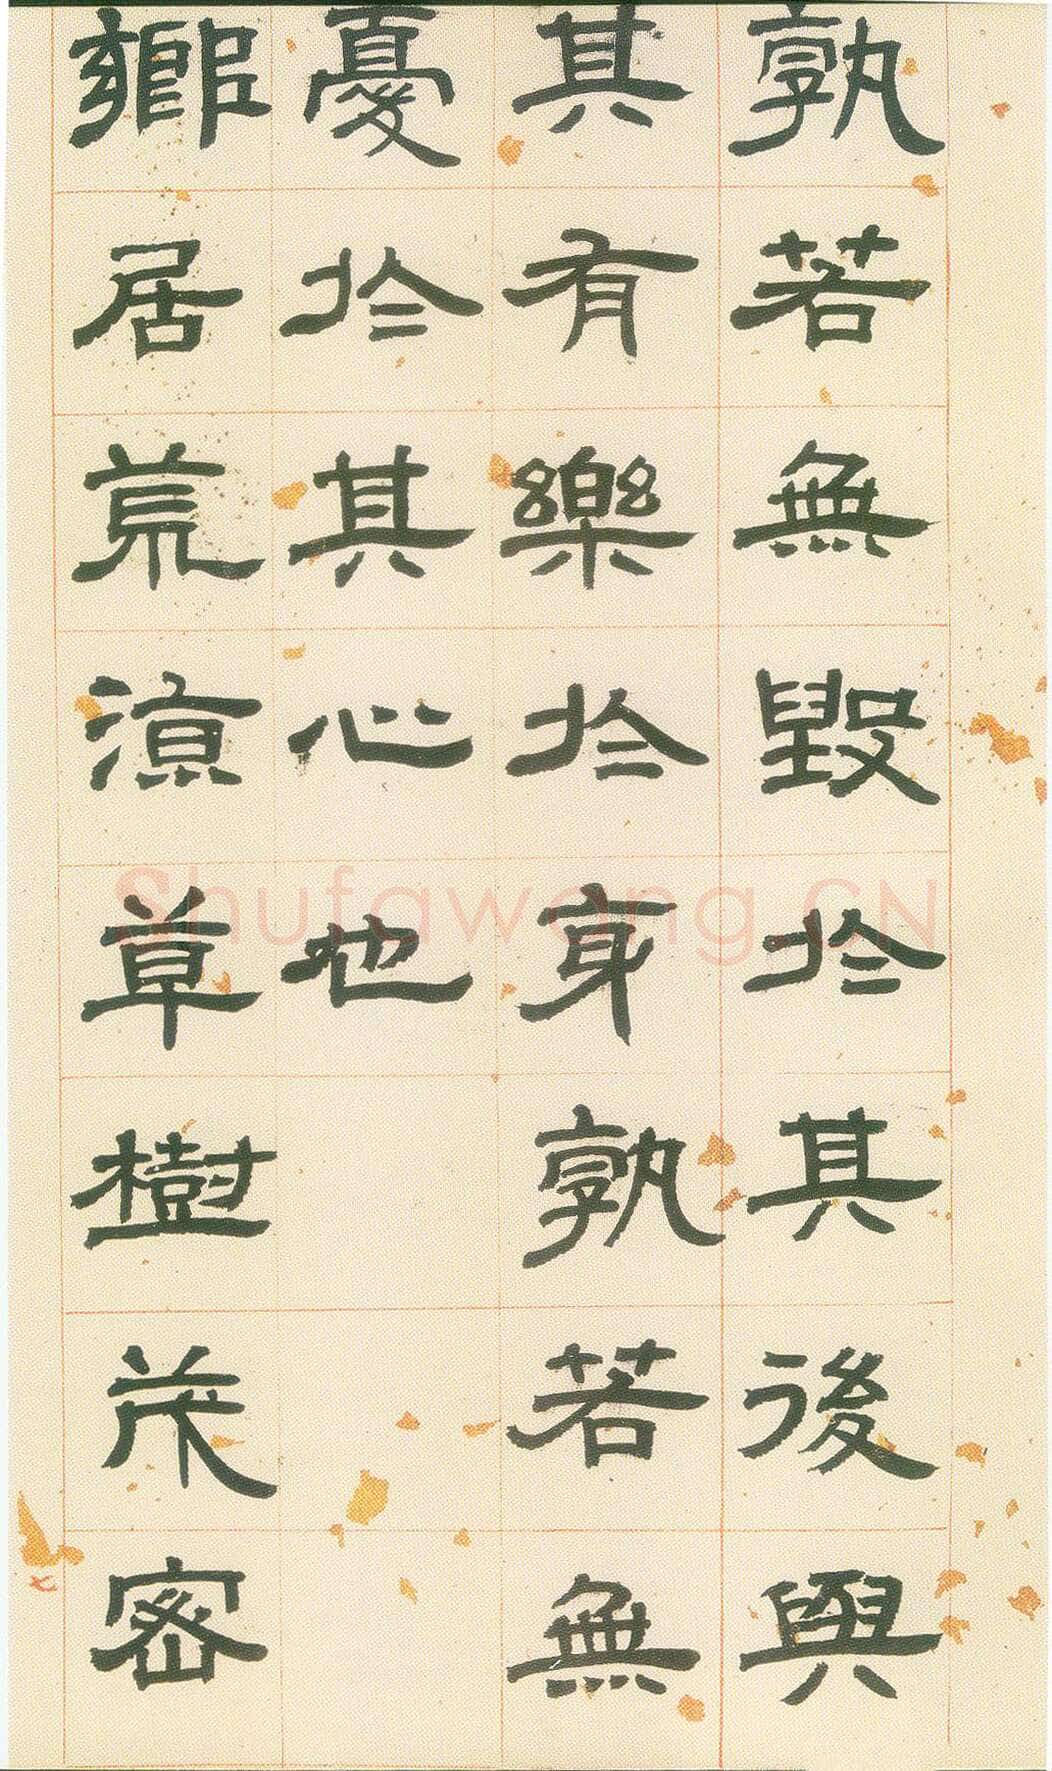 孰若無毀於其後與
其有樂於身孰若無
憂於其心也
鄉居荒涼草樹茂密
Shufawang.CN
七